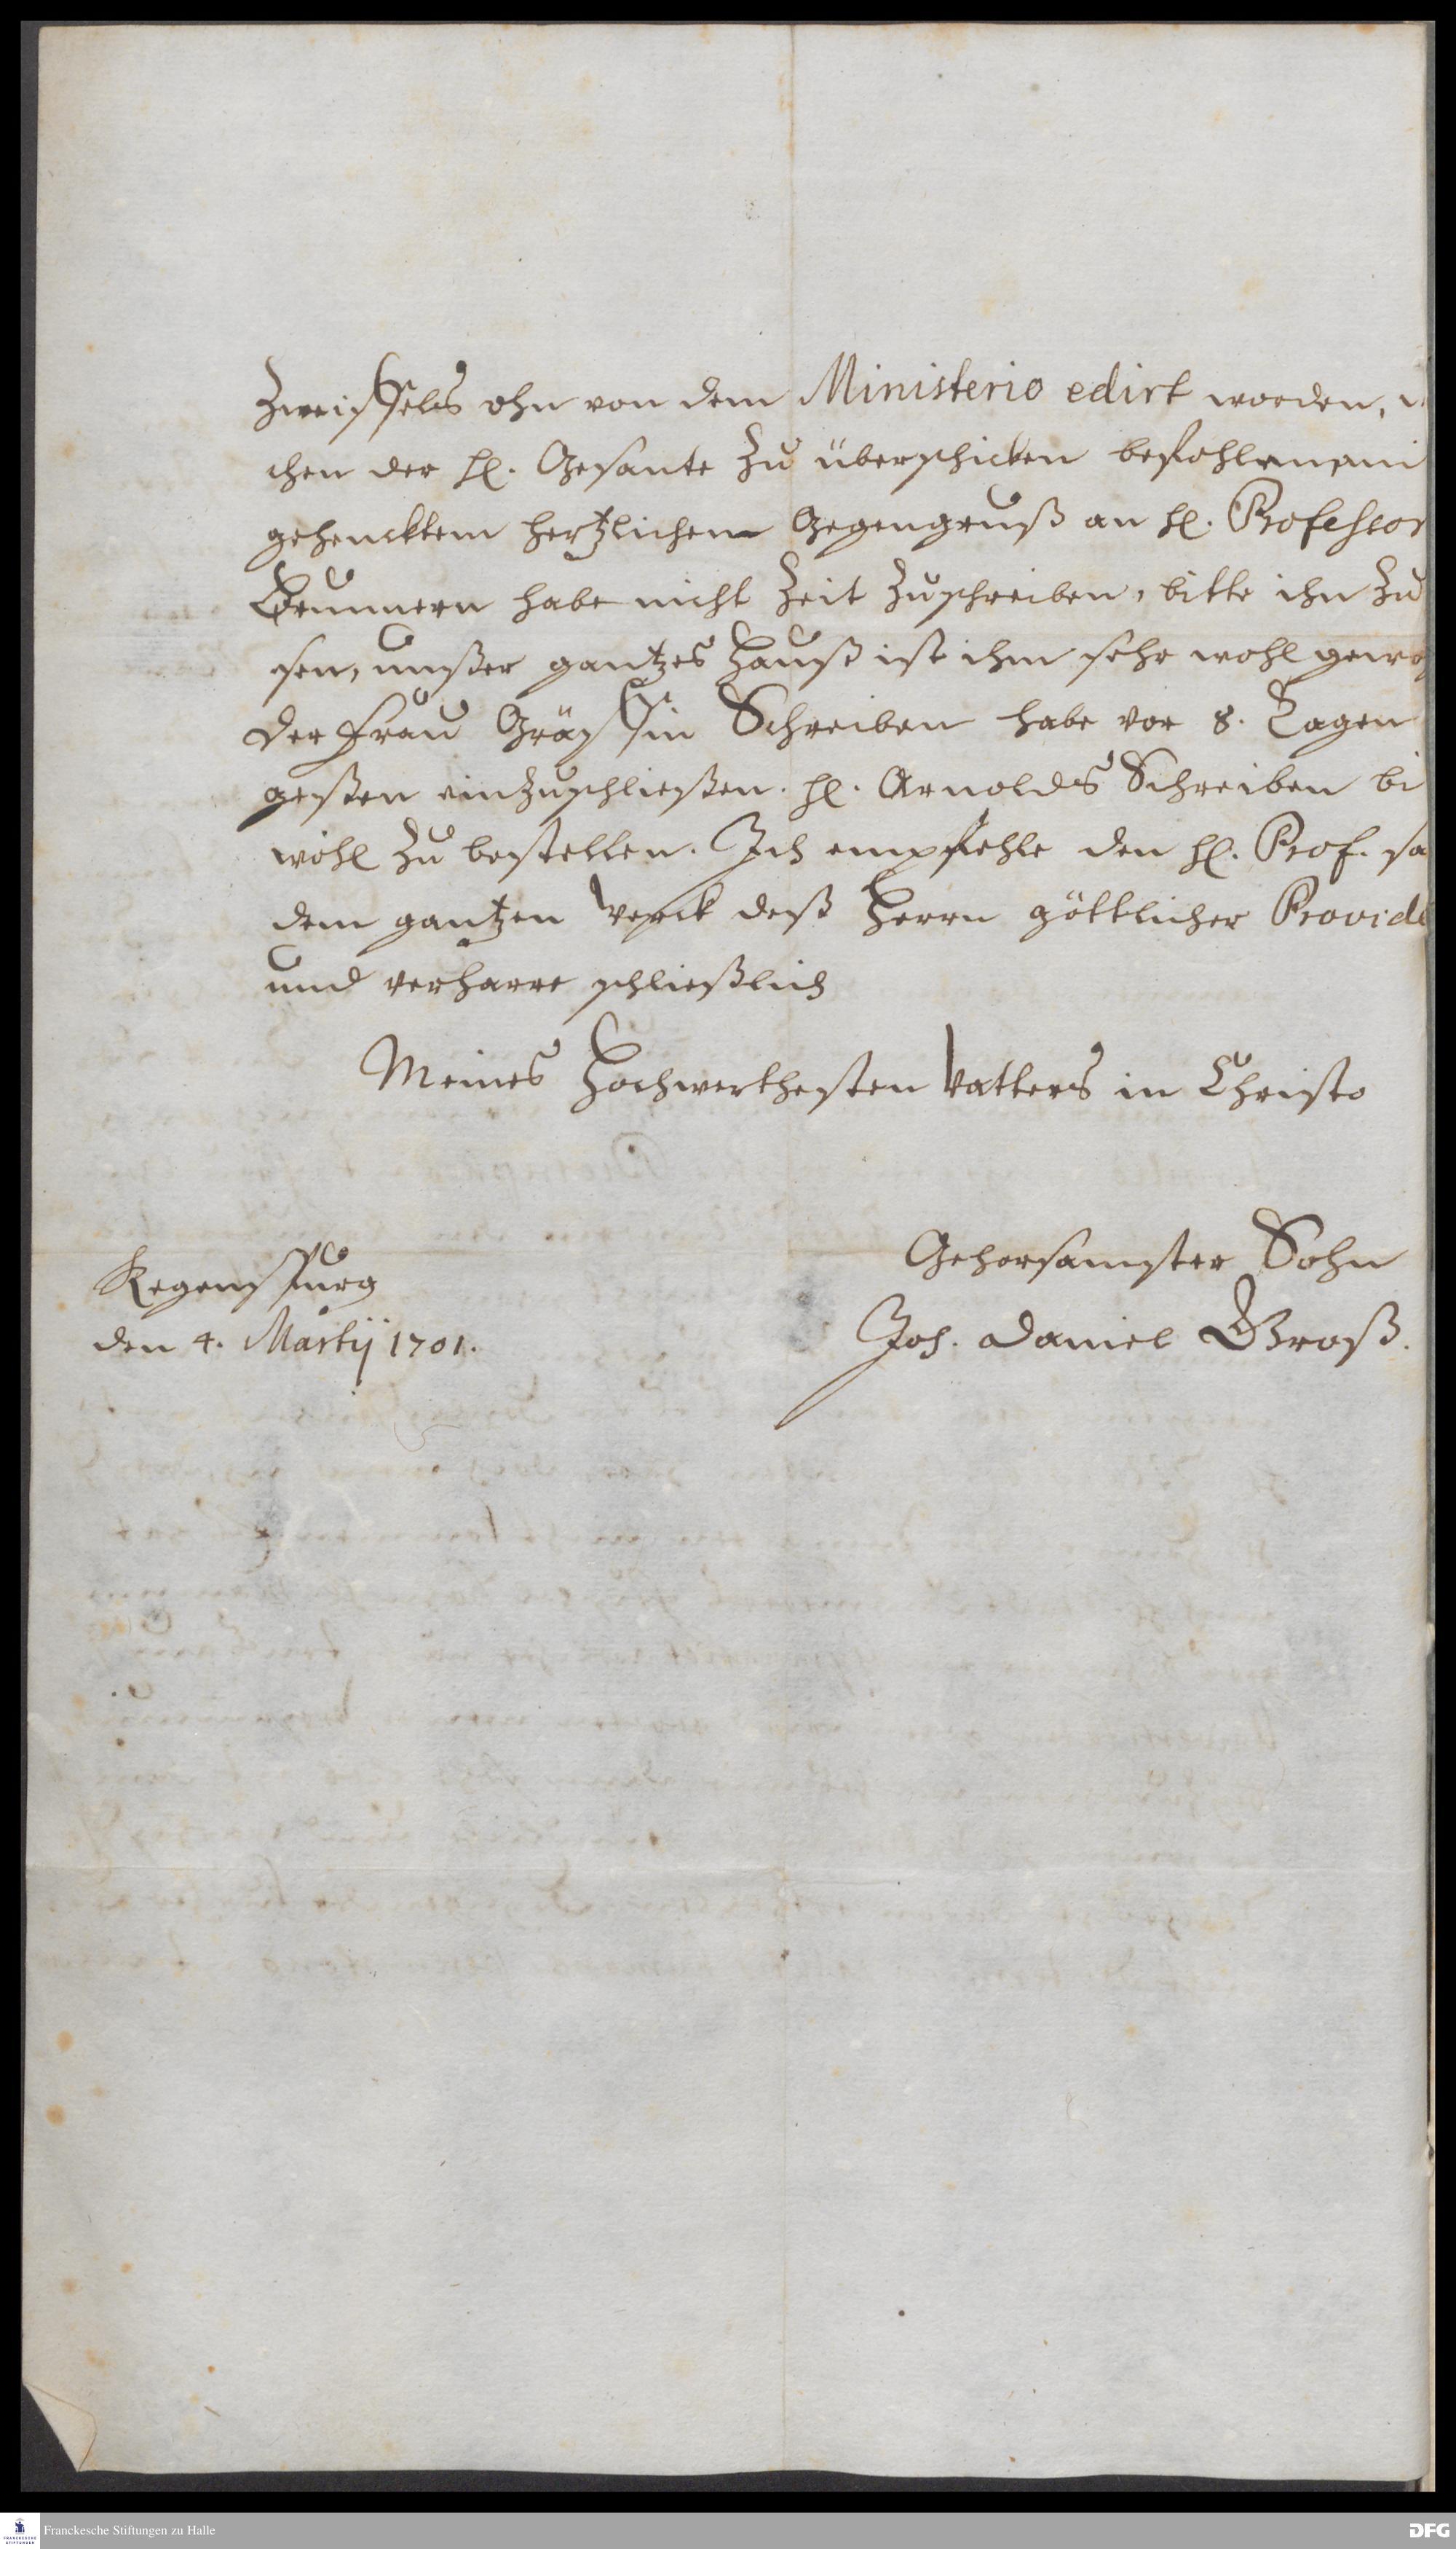 Zweiffels ohn von dem Ministerio edirt worden,
chen der H. Gesante zu überschicken befohlen,
gehencktem hertzlichem Gegengruß an H. Professor
Brunnern habe nicht Zeit zuschreiben, bitte ihn zu
sen, unßer gantzes Hauß ist ihm sehr wohl gewo
der Frau Gräffin Schreiben habe vor 8. Tagen
geßen einzuschließen. H. Arnolds Schreiben bi
wohl zu bestellen. Ich empfehle den H. Prof. sa
dem gantzen Werck deß Herrn göttlicher Provide
und verharre schließlich
Meines Hochwerthesten Vatters in Christo
Gehorsamster Sohn
Joh. Daniel Groß.
Regenspurg
den 4. Martij 1701.
FRANCKESCHE STIFTUNGEN
Franckesche Stiftungen zu Halle
DFG